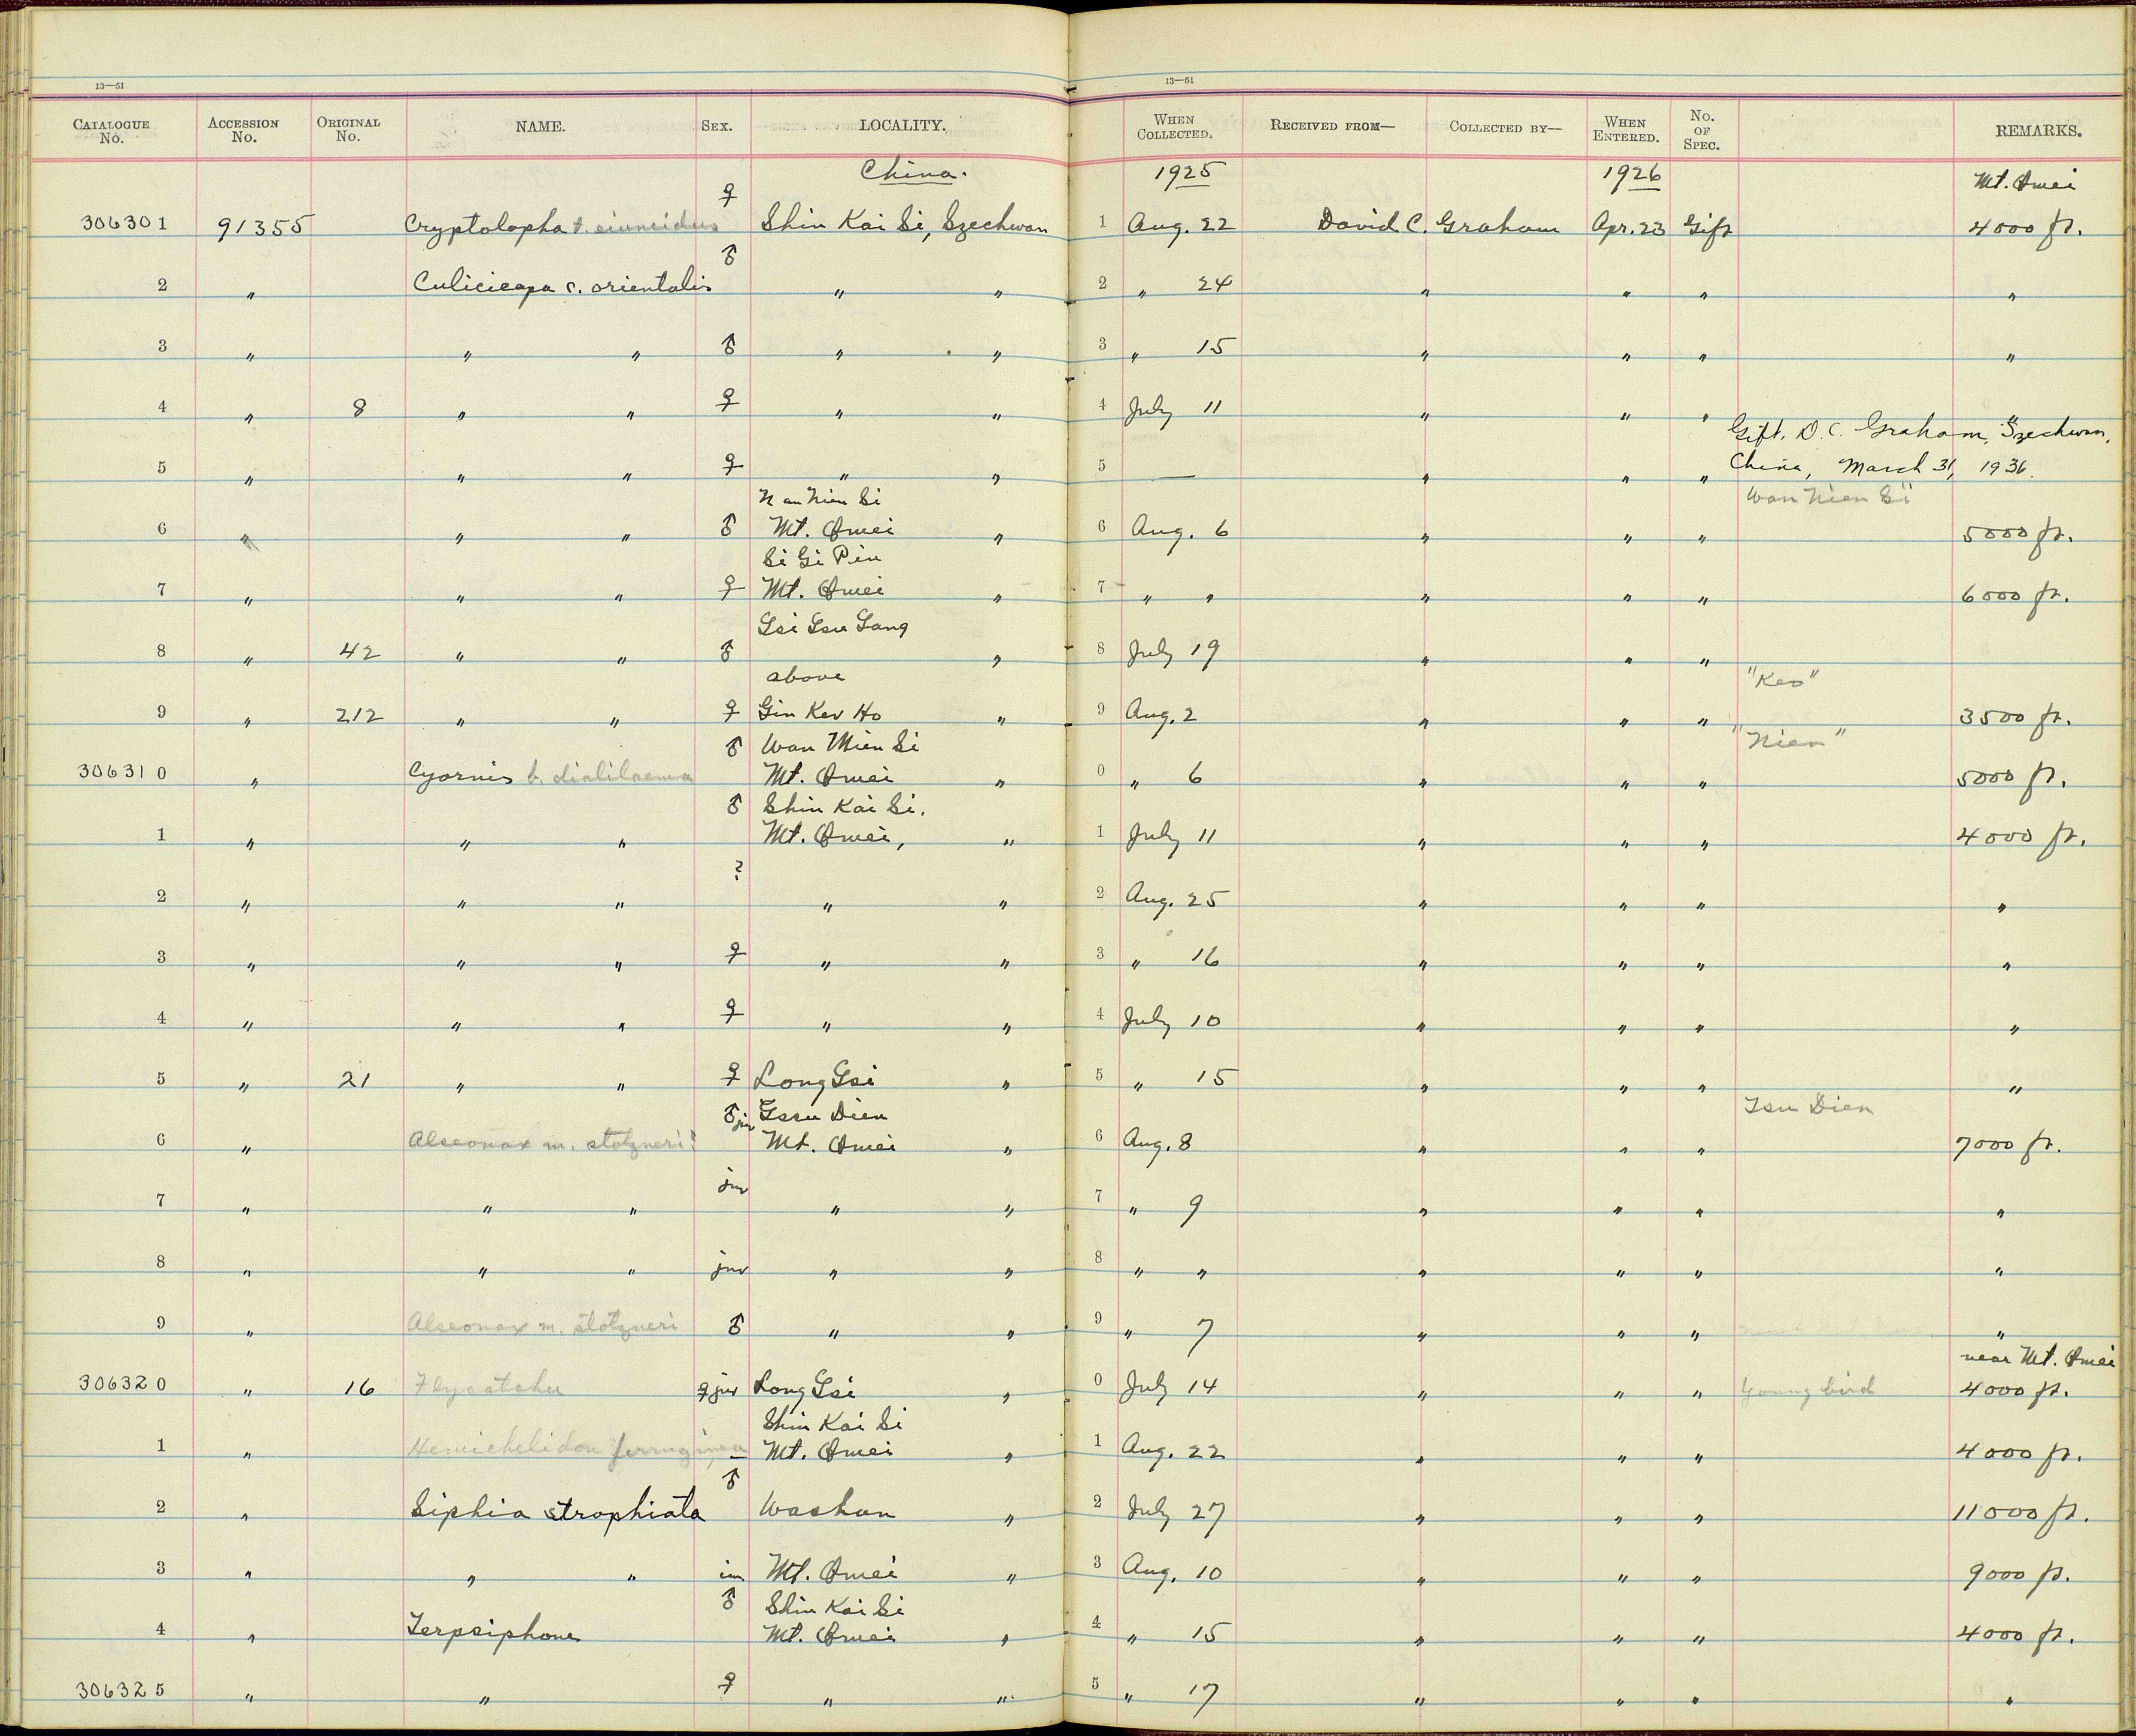 13—51 13—51
CATALOGUE No. ACCESSION No. ORIGINAL No. NAME. SEX. LOCALITY. WHEN COLLECTED. RECEIVED FROM— COLLECTED BY— WHEN ENTERED. No. OF SPEC. REMARKS.
China. 1925 1926 Mt. Omei
306301 91355 Cryptolopha ♀ Shin Kai Si, Szechwan 1 Aug. 22 David C. Graham Apr. 23 Gift 4000 ft.
2 " Culicicapa c. orientalis ♂ " " 2 " 24 " " " "
3 " " " ♂ " " 3 " 15 " " " "
4 " 8 " " ♀ " " 4 July 11 " " " "
Gift. D. C. Graham, Szechwan,
5 " " " ♀ " " 5 — " " " China, March 31, 1936.
Nan Nien Si Wan Nien Si
6 " " " ♂ Mt. Omei " 6 Aug. 6 " " " 5000 ft.
Si Gi Pin
7 " " " ♀ Mt. Omei " 7 " " " " " 6000 ft.
Tsi Tsu Tang
8 " 42 " " ♂ " 8 July 19 " " "
above "Keo"
9 " 212 " " ♀ Gin Kev Ho " 9 Aug. 2 " " " 3500 ft.
♂ Wan Mien Si "Nien"
306310 " Cyornis b. dialilaema Mt. Omei " 0 " 6 " " " 5000 ft.
♂ Shin Kai Si.
1 " " " Mt. Omei, " 1 July 11 " " " 4000 ft.
2 " " " ? " " 2 Aug. 25 " " " "
3 " " " ♀ " " 3 " 16 " " " "
4 " " " ♀ " " 4 July 10 " " " "
5 " 21 " " ♀ Long Tsi " 5 " 15 " " " "
♂ juv Tssu Dien Tsu Dien
6 " Alseonax m. stotzneri? Mt. Omei " 6 Aug. 8 " " " 7000 ft.
7 " " " juv " " 7 " 9 " " " "
8 " " " juv " " 8 " " " " " "
9 " Alseonax m. stotzneri ♂ " " 9 " 7 " " " "
near Mt. Omei
306320 " 16 Flycatcher ♀ juv Long Tsi " 0 July 14 " " " Young bird 4000 ft.
Shin Kai Si
1 " Hemichelidon ferruginea – Mt. Omei " 1 Aug. 22 " " " 4000 ft.
2 " Siphia strophiata ♂ Washan " 2 July 27 " " " 11000 ft.
3 " " " im Mt. Omei " 3 Aug. 10 " " " 9000 ft.
♂ Shin Kai Si
4 " Terpsiphone Mt. Omei " 4 " 15 " " " 4000 ft.
306325 " " ♀ " " 5 " 17 " " " "